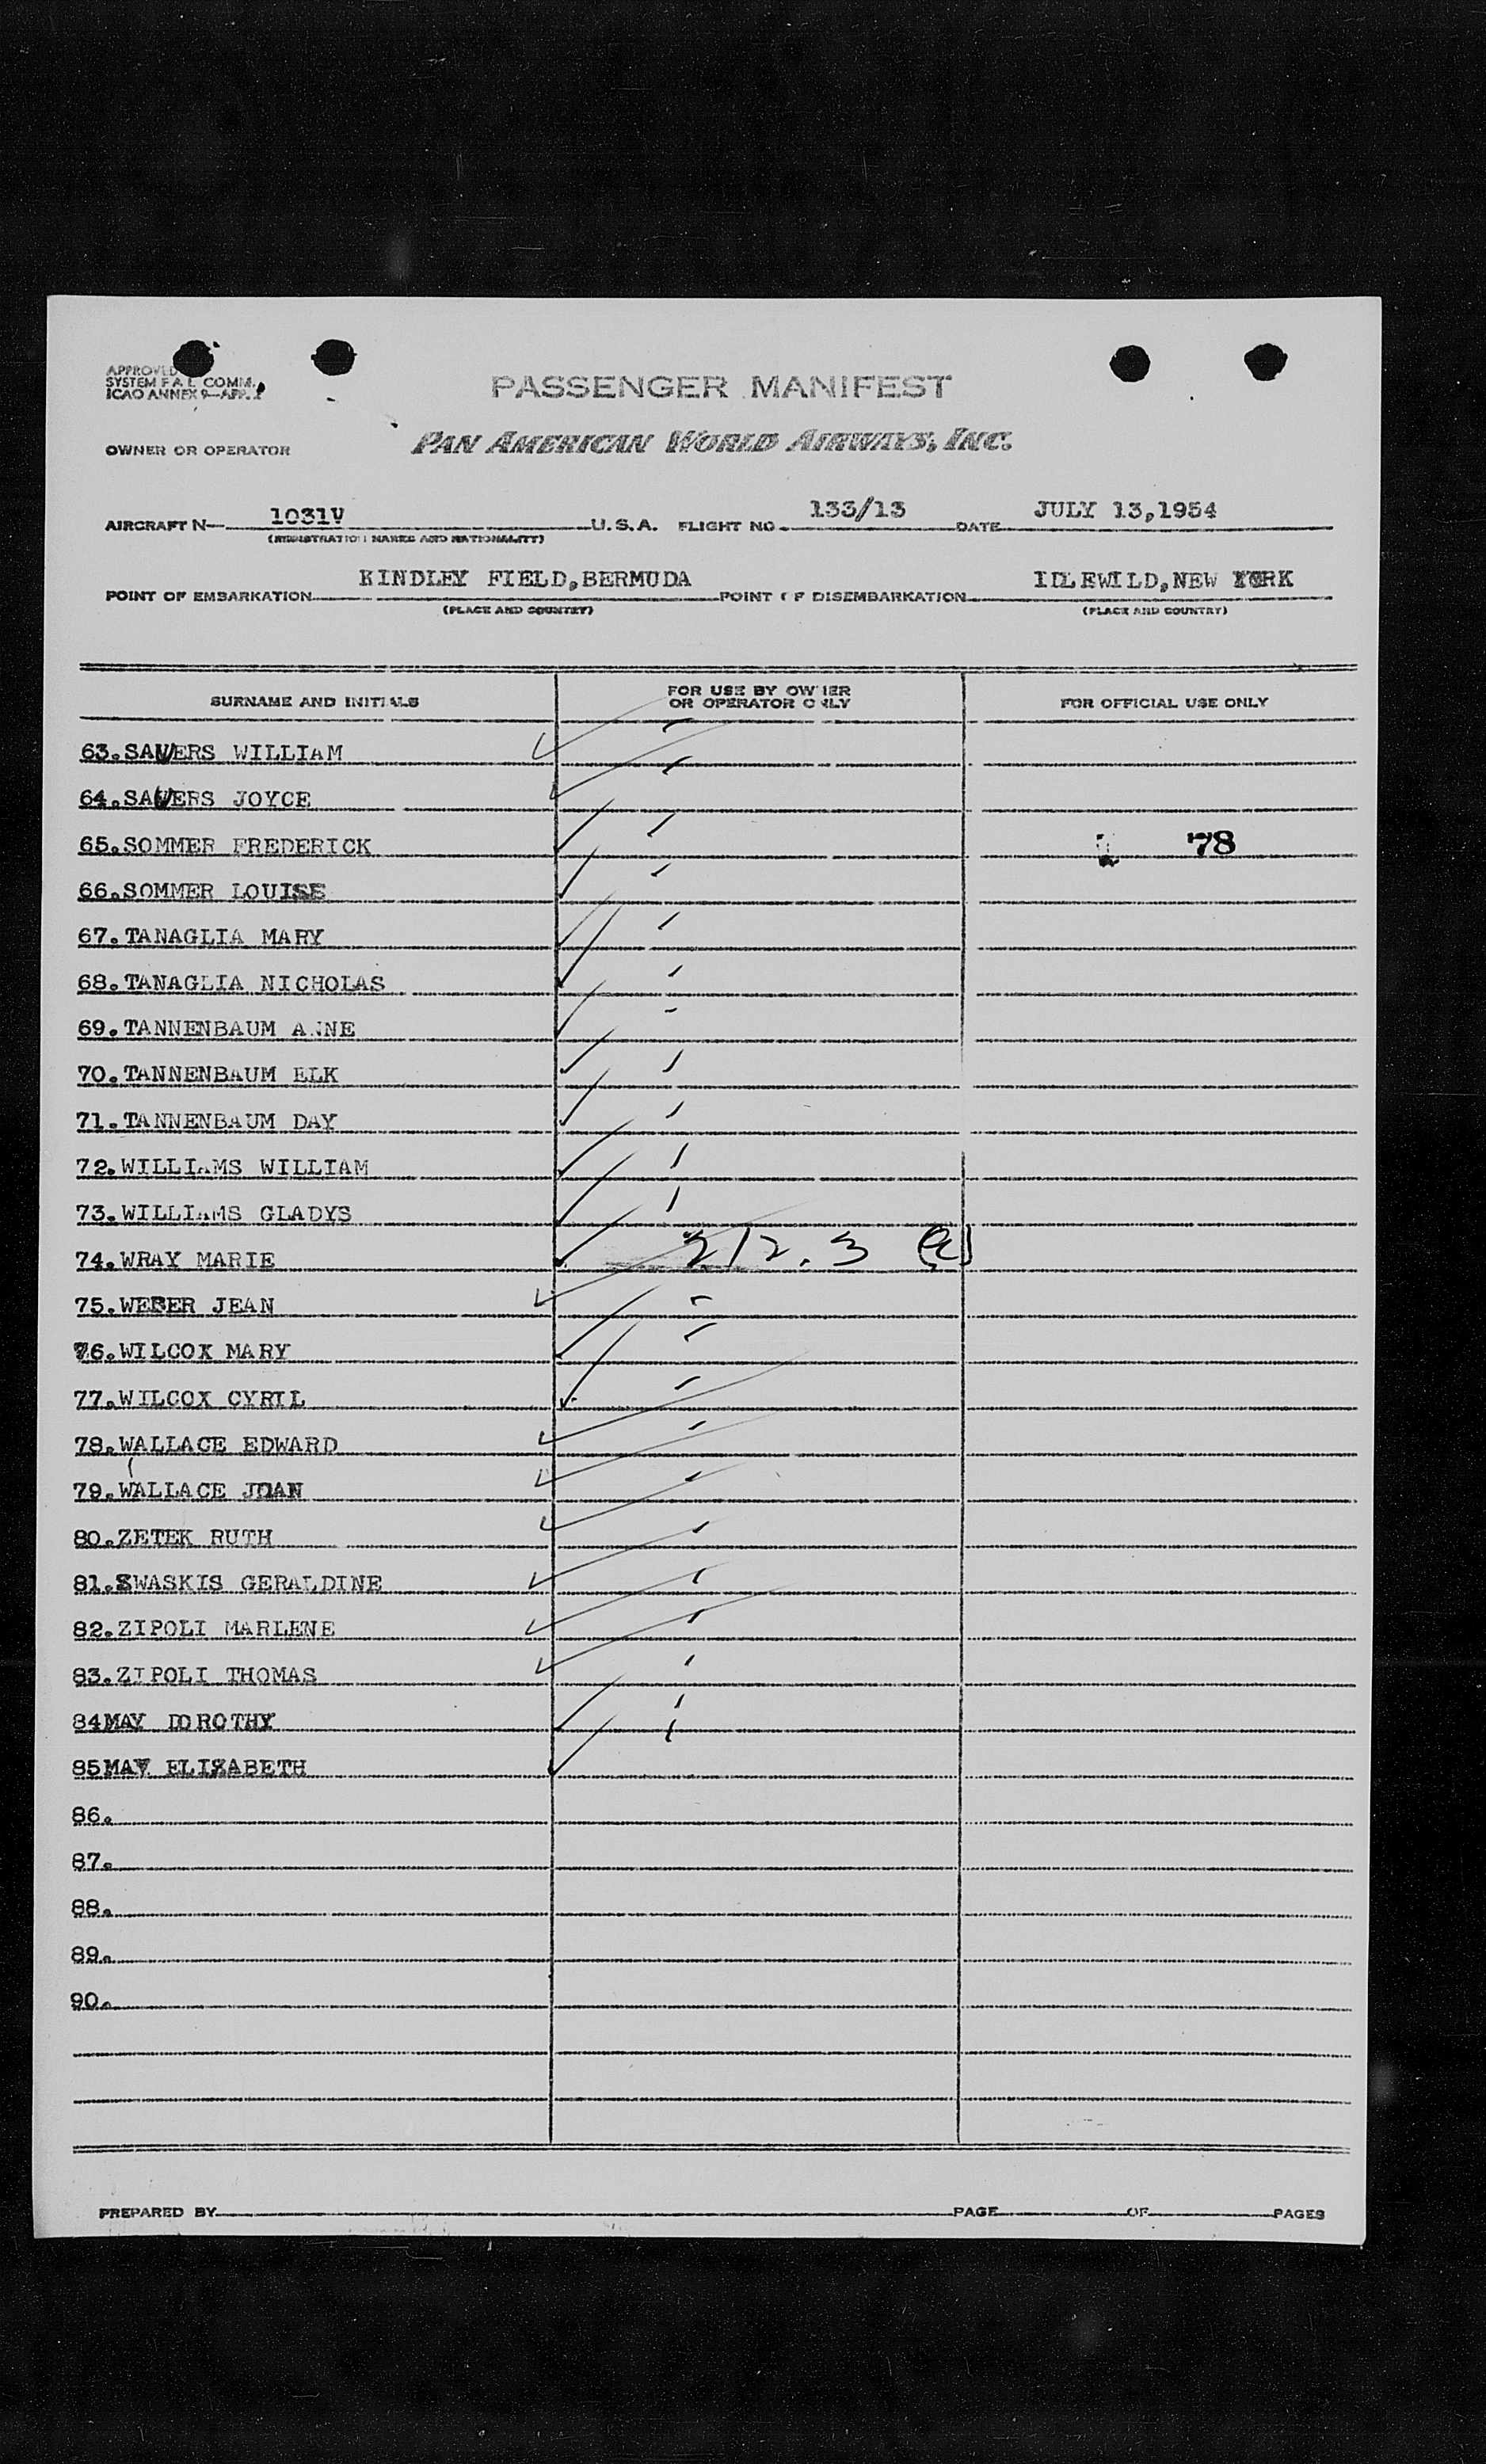 APPROVED
SYSTEM F A L COMM.
ICAO ANNEX 9—APP.
PASSENGER MANIFEST
OWNER OR OPERATOR PAN AMERICAN WORLD AIRWAYS, INC.
AIRCRAFT N— 1031V U.S.A. FLIGHT NO 133/13 DATE JULY 13,1954
(REGISTRATION MARKS AND NATIONALITY)
POINT OF EMBARKATION KINDLEY FIELD,BERMUDA POINT OF DISEMBARKATION IDLEWILD,NEW YORK
(PLACE AND COUNTRY) (PLACE AND COUNTRY)
SURNAME AND INITIALS FOR USE BY OWNER OR OPERATOR ONLY FOR OFFICIAL USE ONLY
63.SAWERS WILLIAM
64.SAWERS JOYCE
65.SOMMER FREDERICK 78
66.SOMMER LOUISE
67.TANAGLIA MARY
68.TANAGLIA NICHOLAS
69.TANNENBAUM ANNE
70.TANNENBAUM ELK
71.TANNENBAUM DAY
72.WILLIAMS WILLIAM
73.WILLIAMS GLADYS
74.WRAY MARIE 212.3
75.WEBER JEAN
76.WILCOX MARY
77.WILCOX CYRIL
78.WALLACE EDWARD
79.WALLACE JOAN
80.ZETEK RUTH
81.ZWASKIS GERALDINE
82.ZIPOLI MARLENE
83.ZIPOLI THOMAS
84MAY DOROTHY
85MAY ELIZABETH
86.
87.
88.
89.
90.
PREPARED BY PAGE OF PAGES